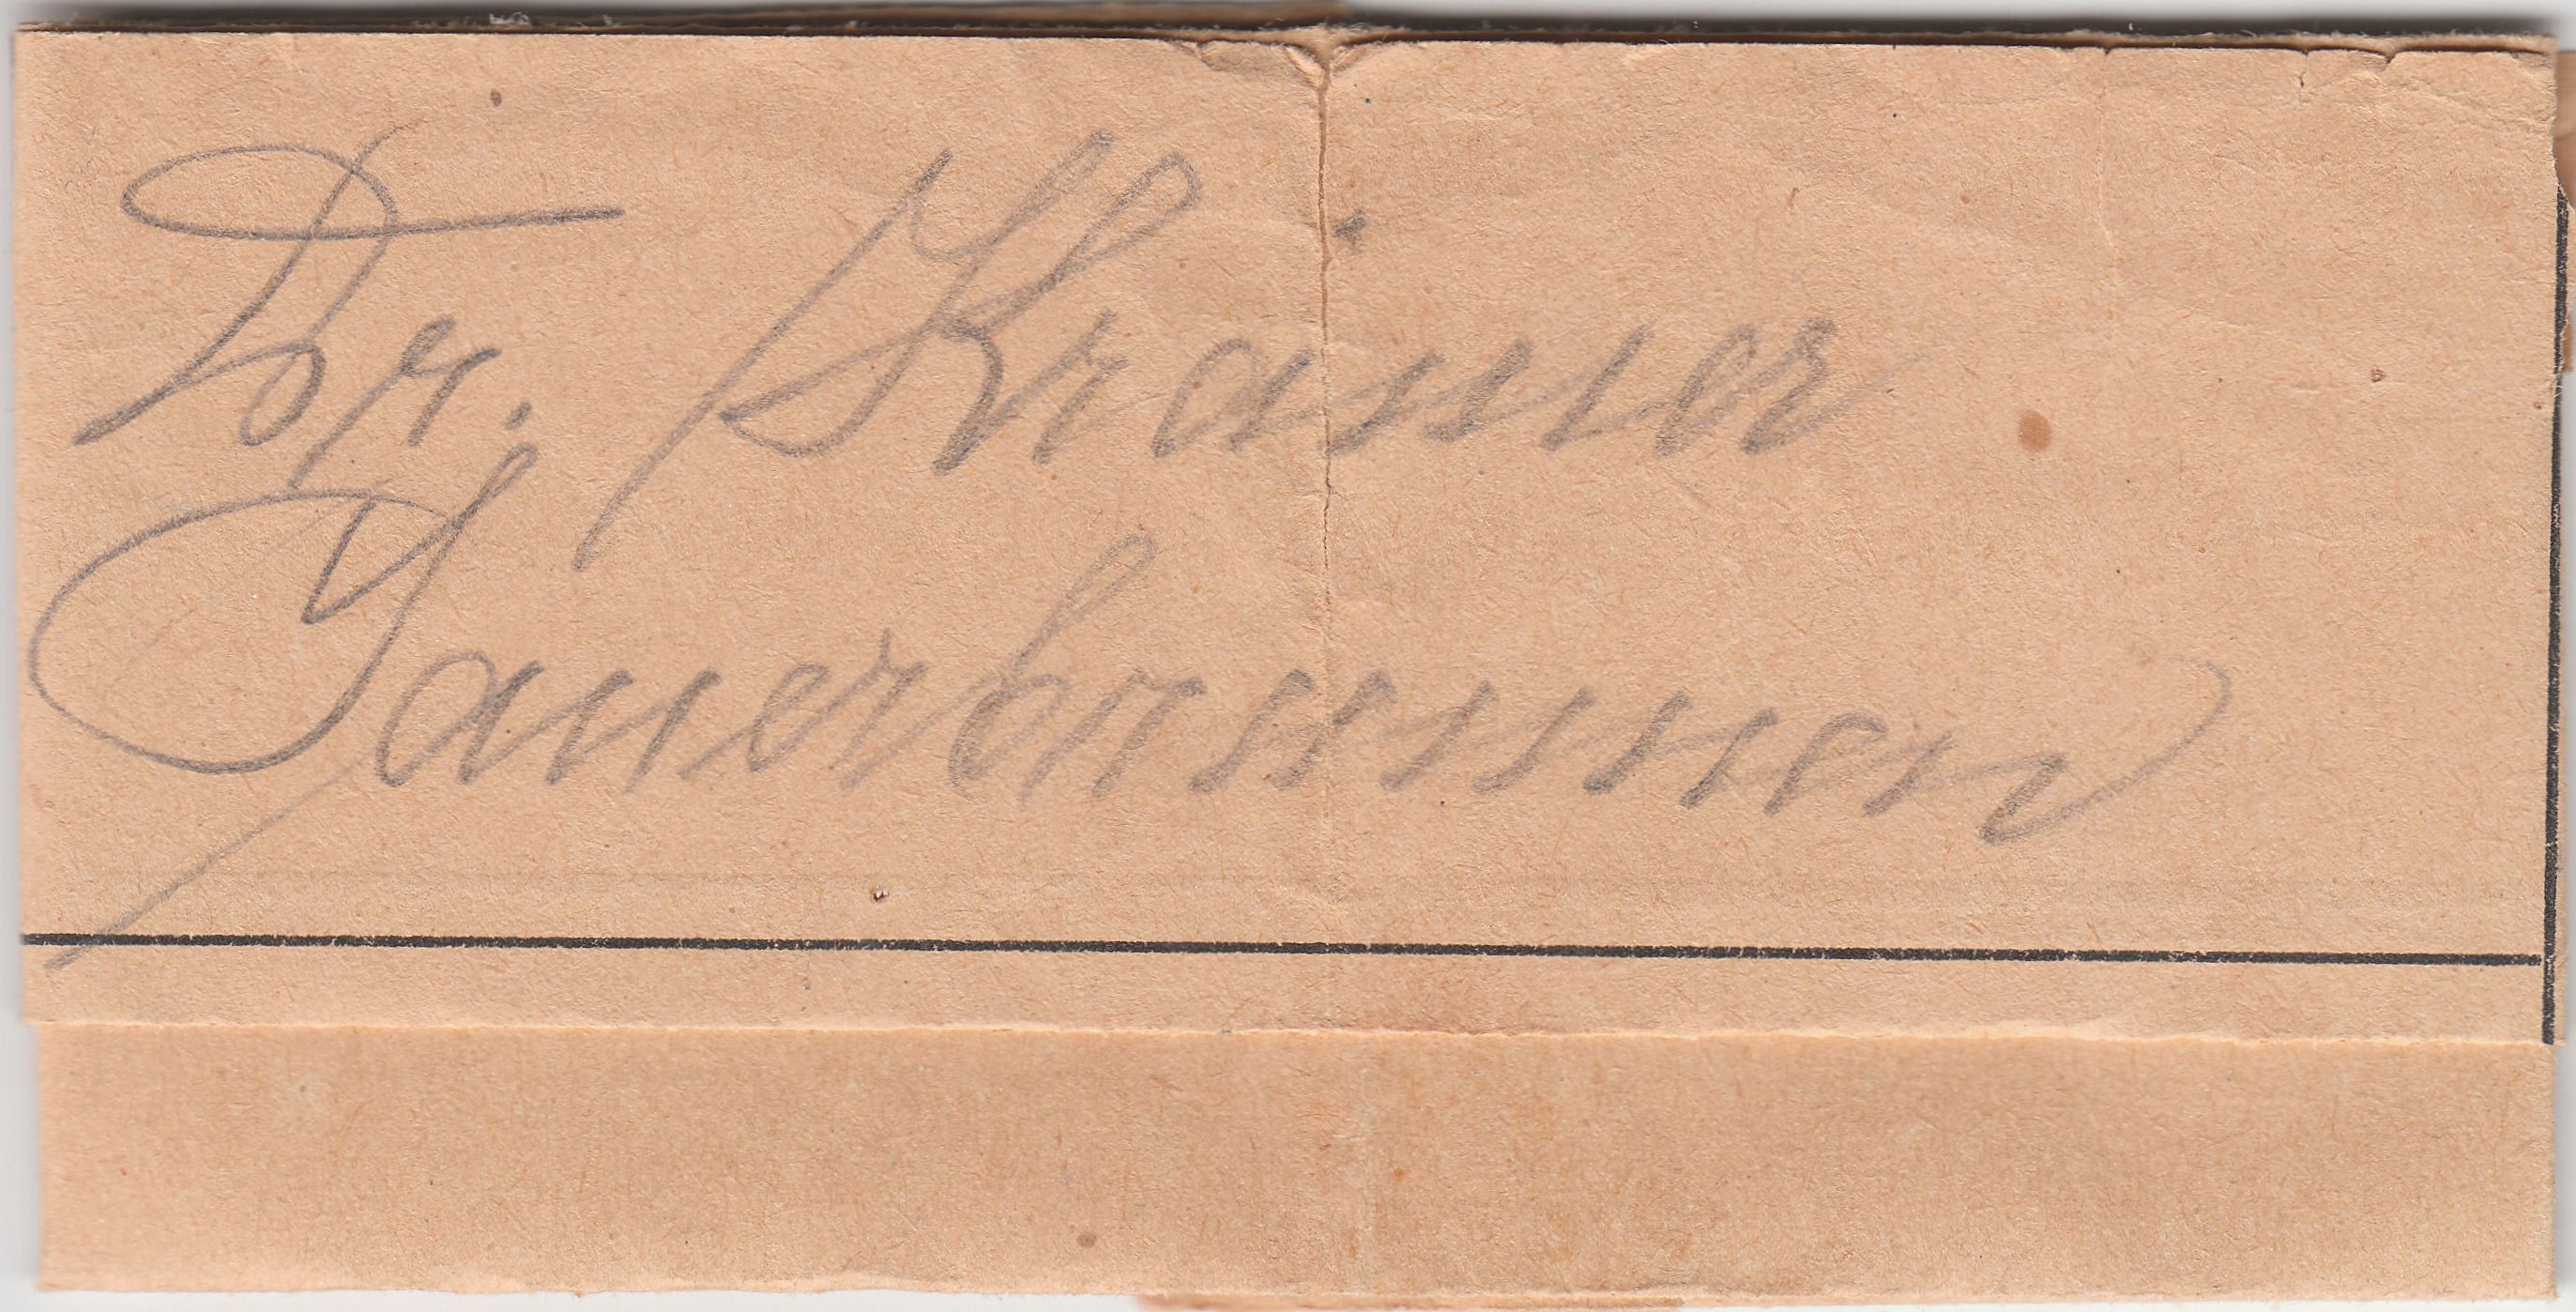 Dr. Krainer
Sauerbrunnen